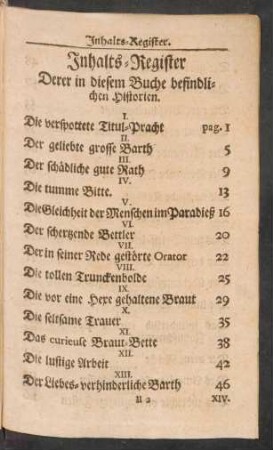 Inhalts-Register.
Inhalts-Register
Derer in diesem Buche befindli-
chen Historien.
I.
Die verspottete Titul-Pracht pag. 1
II.
Der geliebte grosse Barth 5
III.
Der schädliche gute Rath 9
IV.
Die tumme Bitte. 13
V.
Die Gleichheit der Menschen im Paradieß 16
VI.
Der schertzende Bettler 20
VII.
Der in seiner Rede gestörte Orator 22
VIII.
Die tollen Trunckenbolde 25
IX.
Die vor eine Hexe gehaltene Braut 29
X.
Die seltsame Trauer 35
XI.
Das curieuse Braut-Bette 38
XII.
Die lustige Arbeit 42
XIII.
Der Liebes-verhinderliche Barth 46
U 2 XIV.